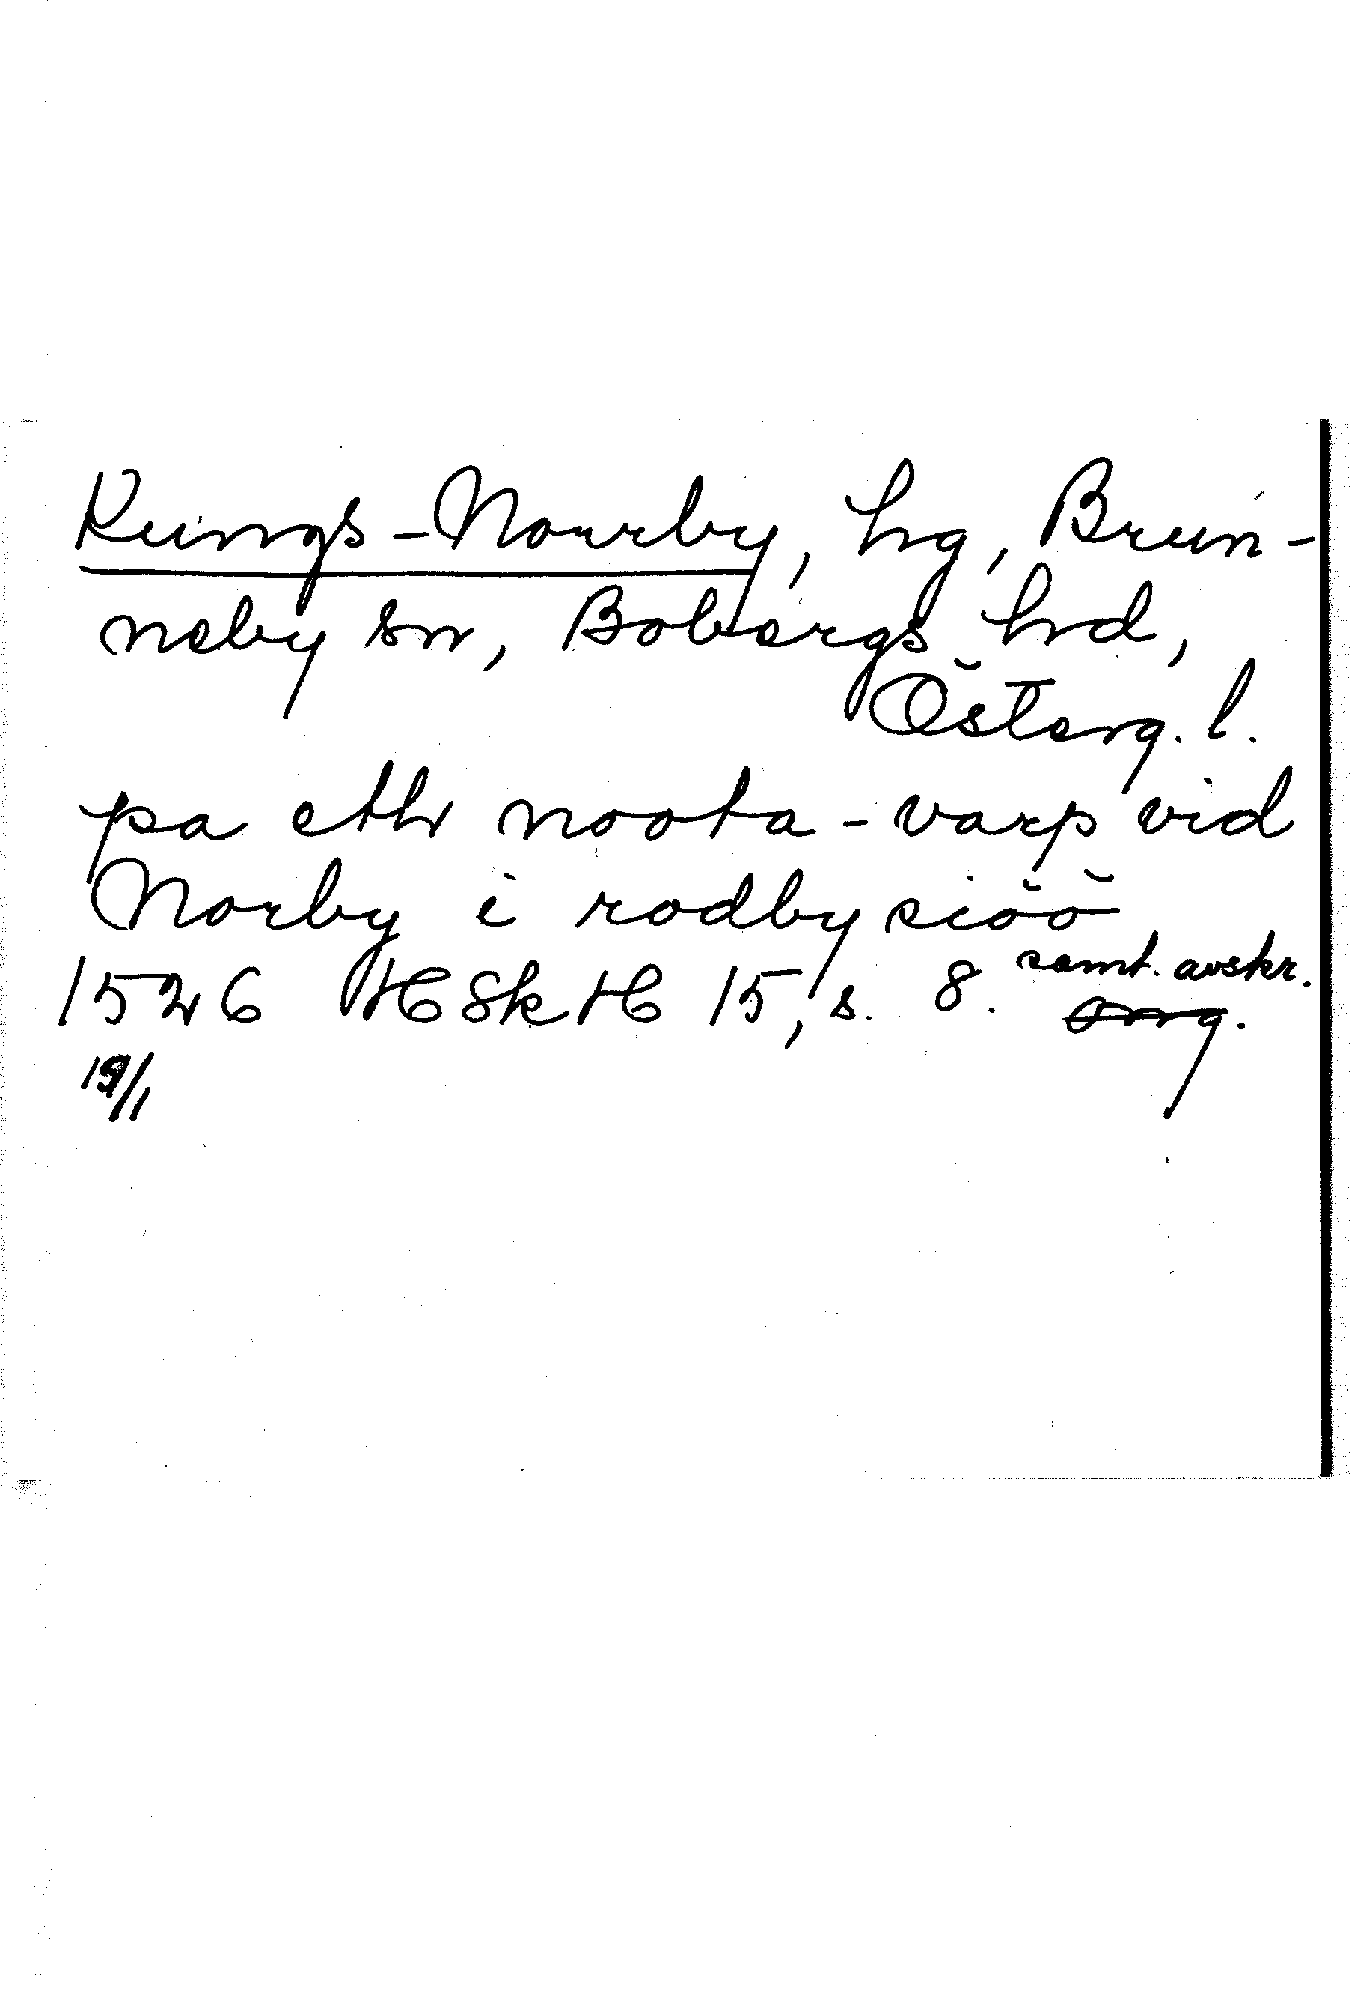 Kungs-Norrby, hg, Brun-
neby sn, Bobergs hd,
Österg. l.
pa eth noota-varp vid
Norby i rodby siöö
1526 HSkH 15, s. 8. samt. avskr.
orig.
19/1